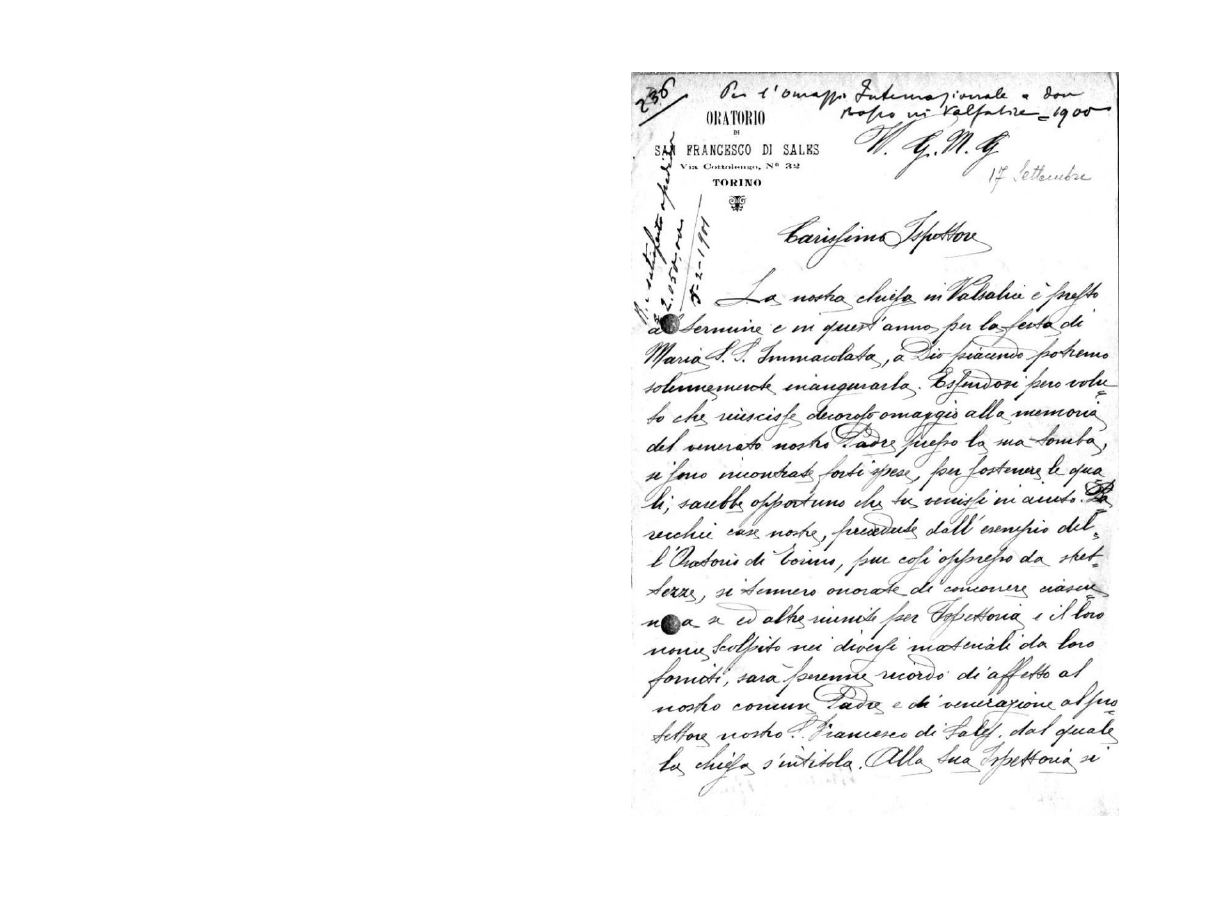 236
Per l'omaggio Internazionale a don
Bosco in Valsalice = 1900
ORATORIO
DI
SAN FRANCESCO DI SALES
Via Cottolengo, Nº 32
TORINO
W. G. M. G
17 Settembre
2.050.00
5-2-1901
Carissimo Ispettore
La nostra chiesa in Valsalice è presto
al termine e in quest'anno, per la festa di
Maria S. S. Immacolata, a Dio piacendo potremo
solennemente inaugurarla. Essendosi pero volu-
to che riuscisse decoroso omaggio alla memoria
del venerato nostro Padre presso la sua tomba,
si sono incontrate forti spese, per sostenere le qua
li, sarebbe opportuno che tu venissi in aiuto. Pa
recchie case nostre, precedute dall'esempio del-
l'Oratorio di Torino, pur così oppresso da stret-
tezze, si tennero onorate di concorrere ciascu-
na se ed altre riunite per Ispettoria e il loro
nome scolpito nei diversi materiali da loro
forniti, sarà perenne ricordo di affetto al
nostro comun Padre e di venerazione al pro
tettore nostro S. Francesco di Sales, dal quale
la chiesa s'intitola. Alla Sua Ispettoria si